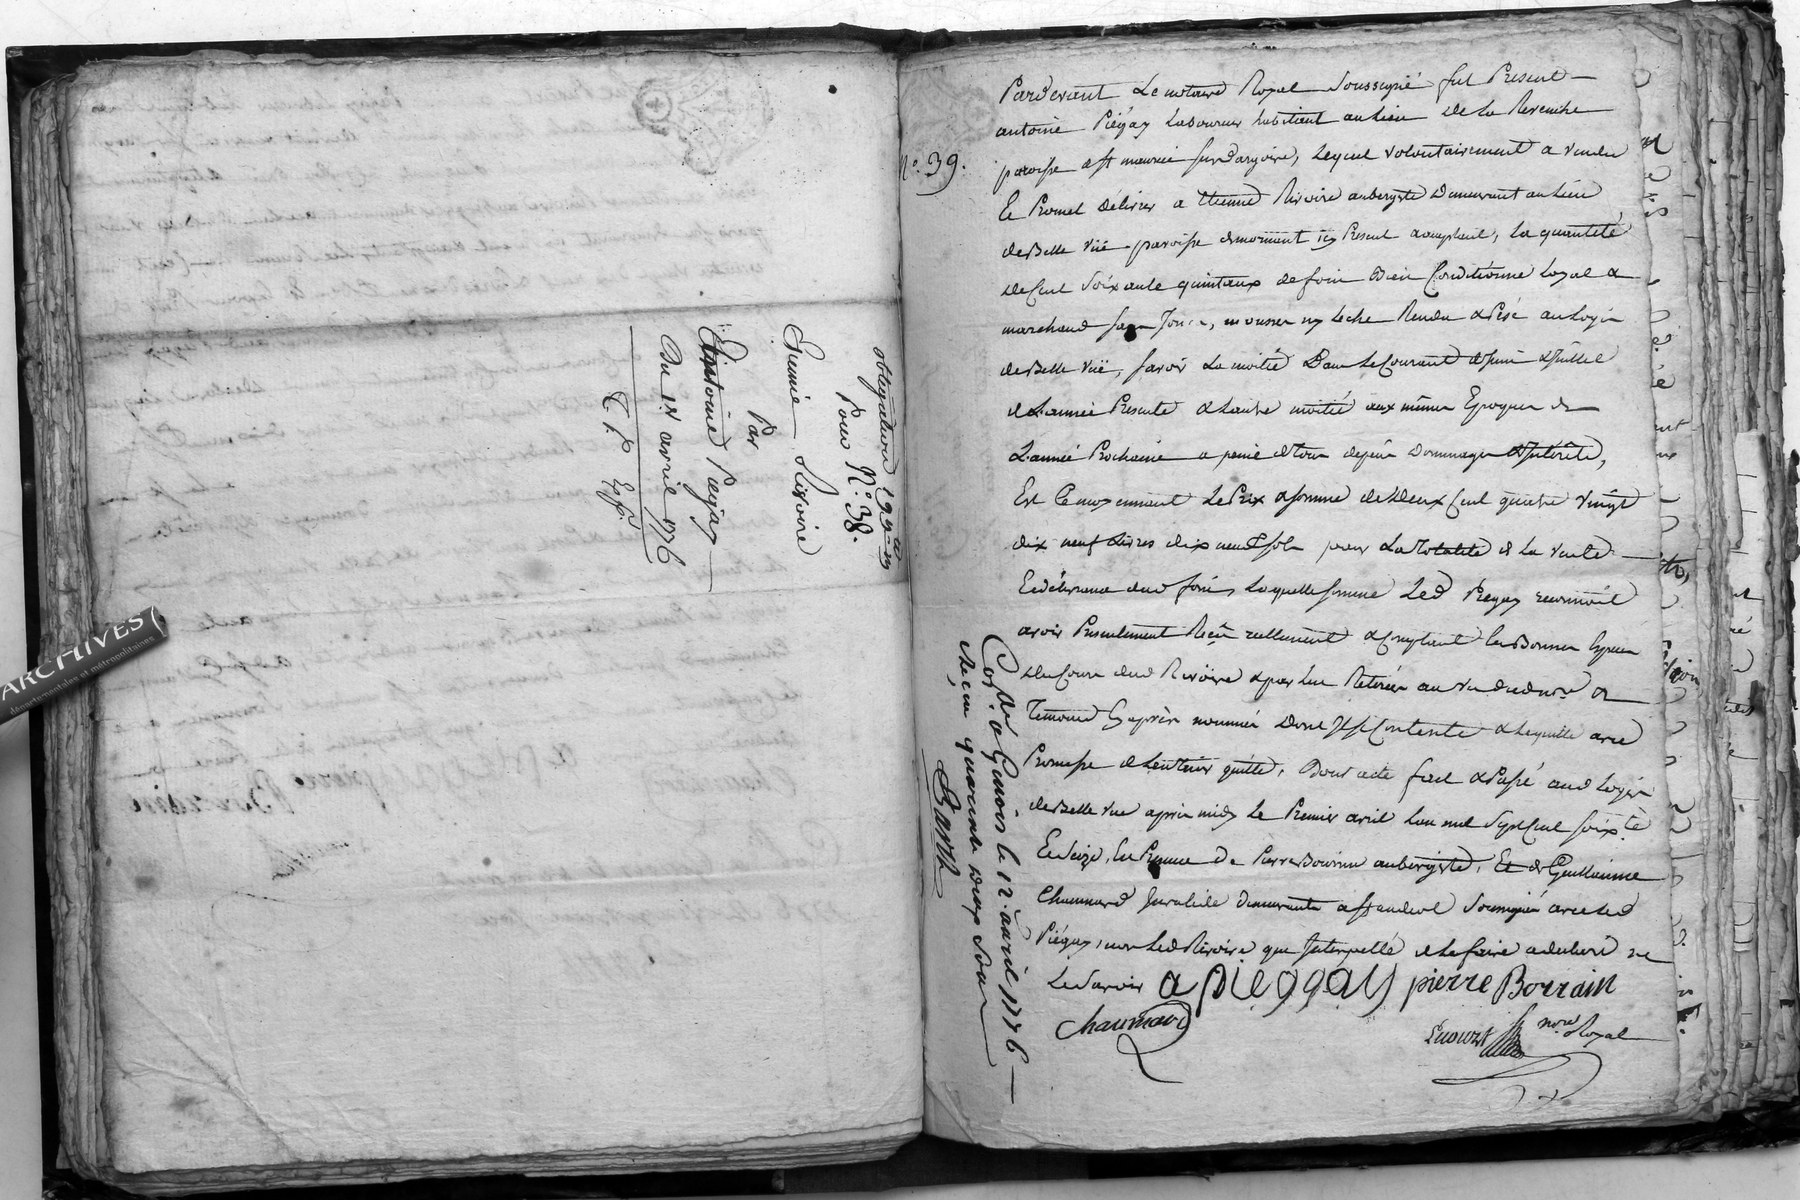 obligation 299ᵗᵗ 19ˢ
Pour N.º 38.
Etienne Rivoire
Par
Antoine Piegay
Du IX avril 1776
C. P. Exp.
ARCHIVES
départementales et métropolitaines
N.º 39.
Pardevant Le notaire Royal Soussigné fut Present
antoine Piégay Laboureur habitant au Lieu de La Revenche
paroisse de st maurice sur dargoire, Lequel volontairement a vendu
Et Promet délivrer a Etienne Rivoire aubergiste Demeurant au Lieu
de Belle vüe paroisse de mornant icy Present acceptant, La quantité
de Cent Soixante quintaux de foin Bien Conditionné Loyal &
marchand sans Jonc, mousse ny leche Rendu & Pesé au Logis
de Belle vüe, savoir La moitié Dans Le Courant de juin & Juillet
de L'année Presente & L'autre moitié aux mêmes Epoques de
L'année Prochaine a peine de tous depens Dommages & Interêts,
Est Ce moyennant Le Prix & somme de Deux Cent quatre vingt
dix neuf Livres dix neuf sols pour La Totalité de La vente
Et délivrance dud foin, Laquelle somme Led Piegay reconnoit
avoir Presentement Reçu reellement & Comptant En Bonnes Especes
de Cours dud Rivoire & par Lui Retirées au vu dud nre &
Temoins Cy après nommés Dont Il se Contente & Le quitte avec
Promesse de L'en tenir quitte, Dont acte fait & Passé aud Logis
de Belle vue après midy Le Premier avril L'an mil Sept Cent soixte
Et Seize, En Presence de Pierre Bourrin aubergiste, Et de Guillaume
Chaumard demeurants a st andeol Soussignés avec led
Piégay, non Led Rivoire que Interpellé de Le faire a declaré ne
Le Savoir a pieggay pierre Borrain
Chaumard
nore Royal
Cos. de Givors le 12. avril 1776
Reçu quarante deux sous
Barth